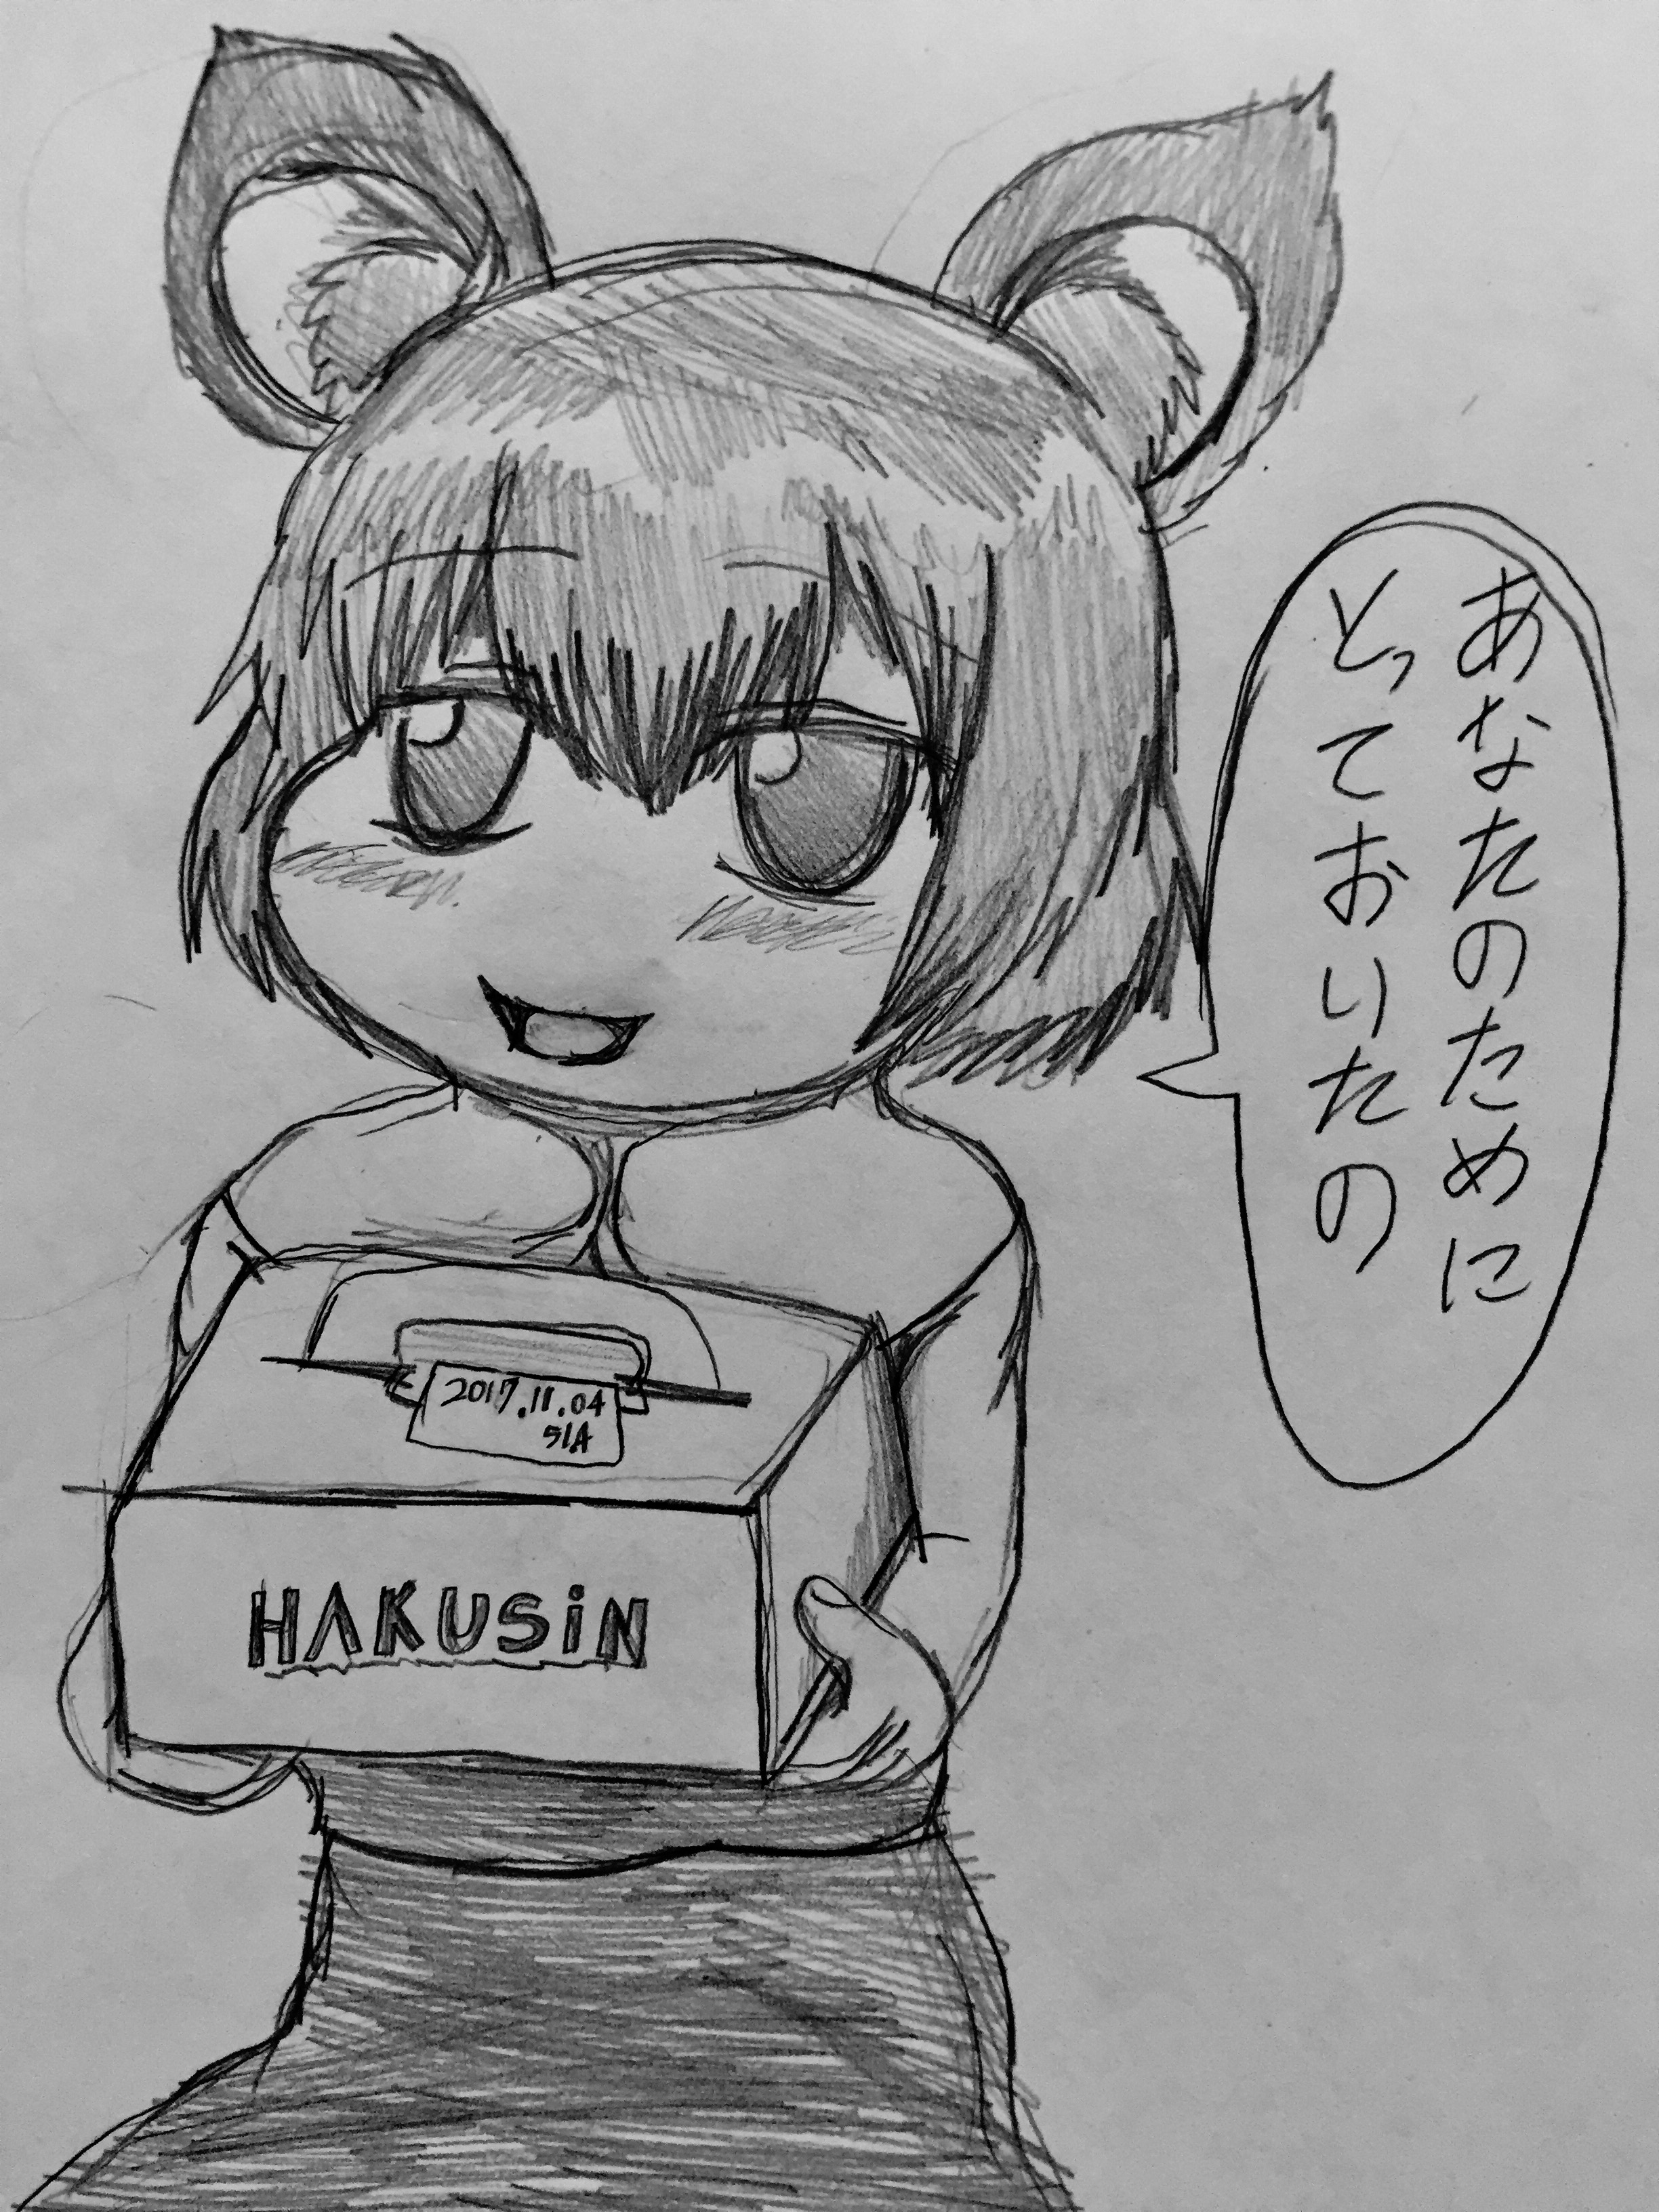 あなたのために
とっておいたの
2017.11.04
51A
HAKUSiN